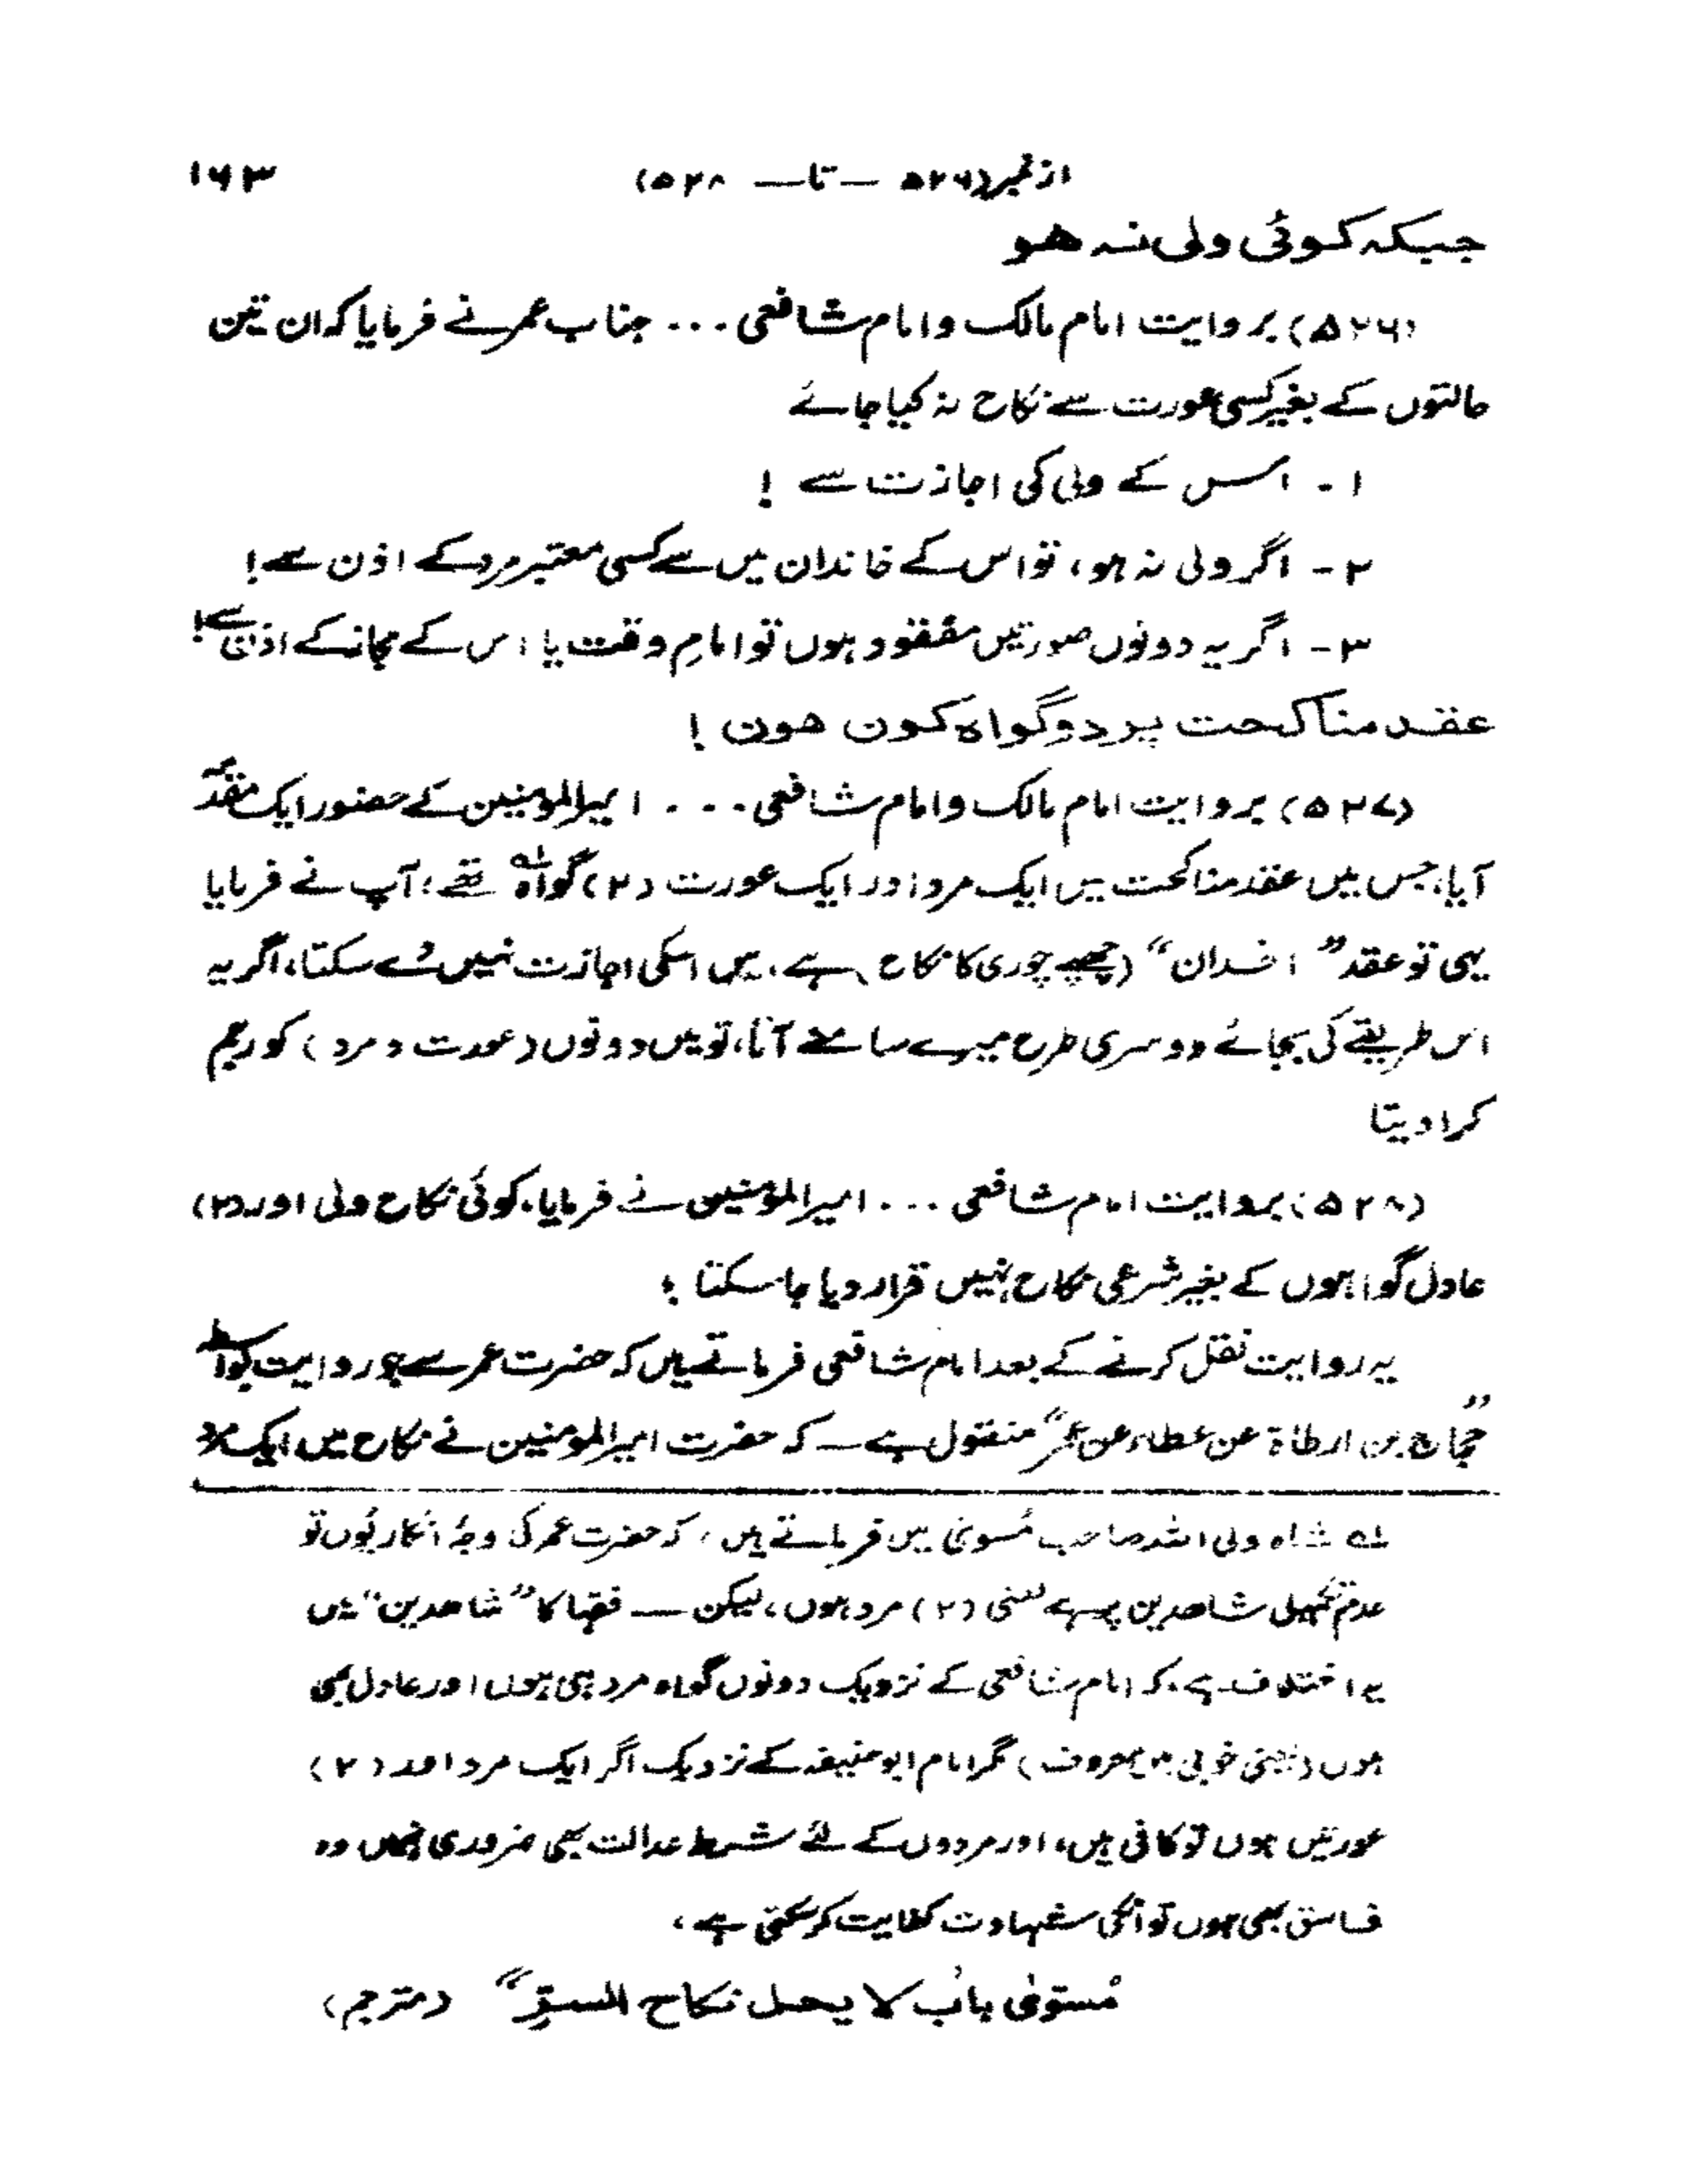 از نمبر (۵۲۶ — تا — ۵۲۸) ۱۶۳
جبکہ کوئی ولی نہ ہو
(۵۲۶) بروایت امام مالک و امام شافعی ... جناب عمر نے فرمایا کہ ان تین
حالتوں کے بغیر کسی عورت سے نکاح نہ کیا جائے
۱ - اس کے ولی کی اجازت سے !
۲ - اگر ولی نہ ہو، تو اس کے خاندان میں سے کسی معتبر مرد کے اذن سے!
۳ - اگر یہ دونوں صورتیں مفقود ہوں تو امامِ وقت یا اس کے مجاز کے اذن سے!
عقد مناکحت پر دو گواہ کون ہوں !
(۵۲۷) بروایت امام مالک و امام شافعی ... امیرالمومنین کے حضور ایک مقدمہ
آیا، جس میں عقد مناکحت میں ایک مرد اور ایک عورت (۲) گواہ لہ تھے؛ آپ نے فرمایا
یہی تو عقد ”اخدان“ (چھپے چوری کا نکاح) ہے، میں اسکی اجازت نہیں دے سکتا، اگر یہ
اس طریقے کی بجائے دوسری طرح میرے سامنے آتا، تو میں دونوں (عورت و مرد) کو رجم
کرا دیتا
(۵۲۸) بروایت امام شافعی ... امیرالمؤمنین نے فرمایا، کوئی نکاح ولی اور (۲)
عادل گواہوں کے بغیر شرعی نکاح نہیں قرار دیا جا سکتا ؛
یہ روایت نقل کرنے کے بعد امام شافعی فرماتے ہیں کہ حضرت عمر سے جو روایت بواسطہ
”حجاج بن ارطاة عن عطاء عن عمر“ منقول ہے — کہ حضرت امیرالمومنین نے نکاح میں ایک مرد
لہ شاہ ولی اللہ صاحب مُسویٰ میں فرماتے ہیں، کہ حضرت عمر کی وجہُ انکار یُوں تو
عدم تکمیل شاہدین پر ہے یعنی (۲) مرد ہوں، لیکن — فقہا کا ”شاہدین“ میں
یہ اختلاف ہے، کہ امام شافعی کے نزدیک دونوں گواہ مرد ہی ہوں اور عادل بھی
ہوں (یعنی خوبی میں معروف) مگر امام ابو حنیفہ کے نزدیک اگر ایک مرد اور (۲)
عورتیں ہوں تو کافی ہیں، اور مردوں کے لئے شرط عدالت بھی ضروری نہیں وہ
فاسق بھی ہوں تو انکی شہادت کفایت کر سکتی ہے،
مُسوّیٰ باب لا یحل نکاح السترِ“ (مترجم)